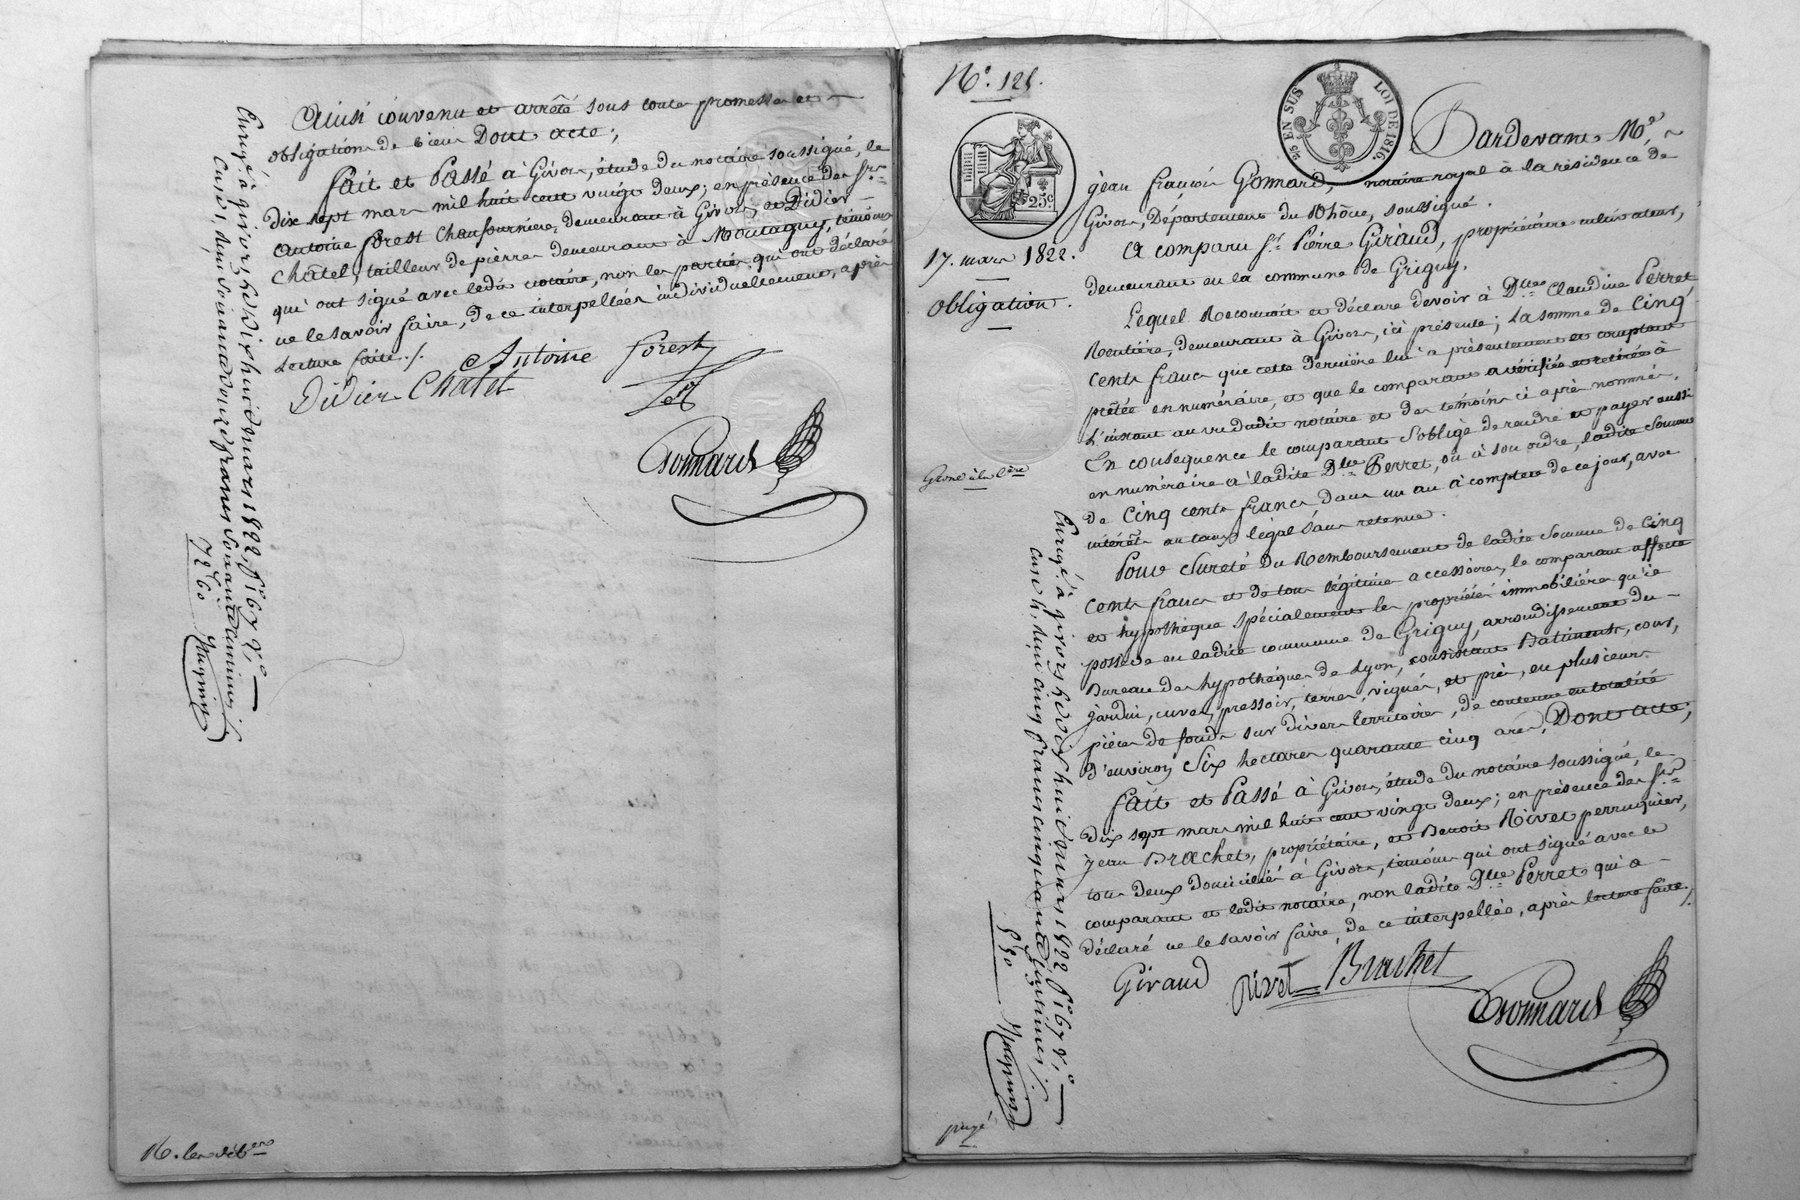 Ainsi convenu et arrêté sous toutes promesses et
obligations de biens Dont acte;
fait et Passé à Givors, étude du notaire soussigné, le
dix sept mars mil huit cent vingt deux; en présence des srs
Antoine forest chaufournier, demeurant à Givors, et Didier
Châtel, tailleur de pierres demeurant à Montagny, témoins
qui ont signé avec ledit notaire, non les parties qui ont déclaré
ne le savoir faire, de ce interpellées individuellement, après
lecture faite ./.
Antoine forest
Didier Chatel
Gonnard
Enregé à givors le dix huit mars 1822 fo 67 Ro
Case 1, reçu soixante douze francs soixante centimes
72 60
N° 125.
25 EN SUS
LOI DE 1816
25c
17. mars 1822.
Obligation.
Grossé à la clère
payé
Pardevant Me
jean françois Gonnard, notaire royal à la résidence de
Givors, Département du Rhône, soussigné.
A comparu sr Pierre Giraud, propriétaire cultivateur,
demeurant en la commune de Grigny.
Lequel Reconnait et déclare devoir à Dlle Claudine Perret
Rentière, demeurant à Givors, ici présente; la somme de Cinq
Cents francs que cette dernière lui a présentement et comptant
prêtée en numéraire, et que le comparant a vérifiée et retirée à
l'instant au vu dudit notaire et des témoins ci après nommés,
En conséquence le comparant s'oblige de rendre et payer aussi
en numéraire à ladite Dlle Perret, ou à son ordre, ladite somme
de Cinq cents francs dans un an à compter de ce jour, avec
intérêts au taux légal sans retenue.
Pour sureté du Remboursement de ladite somme de Cinq
Cents francs et de tous légitimes accessoires, le comparant affecte
et hypothèque spécialement les propriétés immobilières qu'il
possède en ladite commune de Grigny, arrondissement du
Bureau des hypothèques de Lyon, consistant Batiments, cour,
jardin, cuves, pressoir, terres, vignes, et prés, en plusieurs
pièces de fonds sur divers territoires, de contenue en totalité
d'environ Six hectares quarante cinq ares, Dont acte,
fait et Passé à Givors, étude du notaire soussigné, le
dix sept mars mil huit cent vingt deux; en présence des srs
Jean Brachet, propriétaire, et Benoit Rivet perruquier,
tous deux domiciliés à Givors, témoins qui ont signé avec le
comparant et ledit notaire, non ladite Dlle Perret qui a
déclaré ne le savoir faire, de ce interpellée, après lecture faite ./.
Giraud Rivet Brachet
Gonnard
Enregé à givors le dix huit mars 1822 fo 67 Ro
Case 4, reçu cinq francs cinquante centimes
5 50